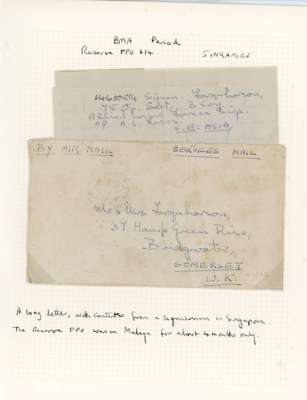 BMA Period
Reserve FPO 614
SINGAPORE
Signm. Farquharson,
75 Op. Sect, 3 Coy
Allied Land Forces
HQ A.L. Forces
S.E. ASIA
BY AIR MAIL
SERVICES MAIL
Mr & Mrs Farquharson,
37 Green Rise,
Bridgwater,
SOMERSET
U.K.
A long letter, with contents from a signalman in Singapore.
The Reserve FPO was in Malaya for about 4 months only.